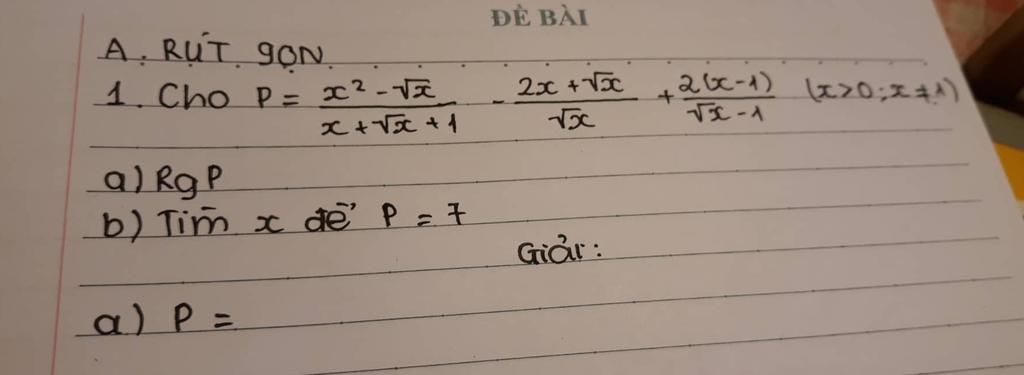 ĐỀ BÀI
A. RÚT GỌN
1. Cho P = \frac{x² - √x}{x + √x + 1} - \frac{2x + √x}{√x} + \frac{2(x-1)}{√x - 1} (x>0; x ≠ 1)
a) Rg P
b) Tìm x để P = 7
Giải:
a) P =